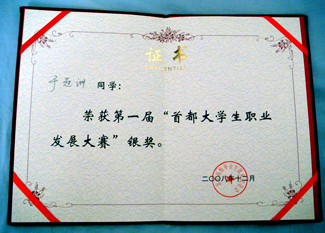 证书
同学：
荣获第一届“首都大学生职业
发展大赛”银奖。
二〇〇八年十二月